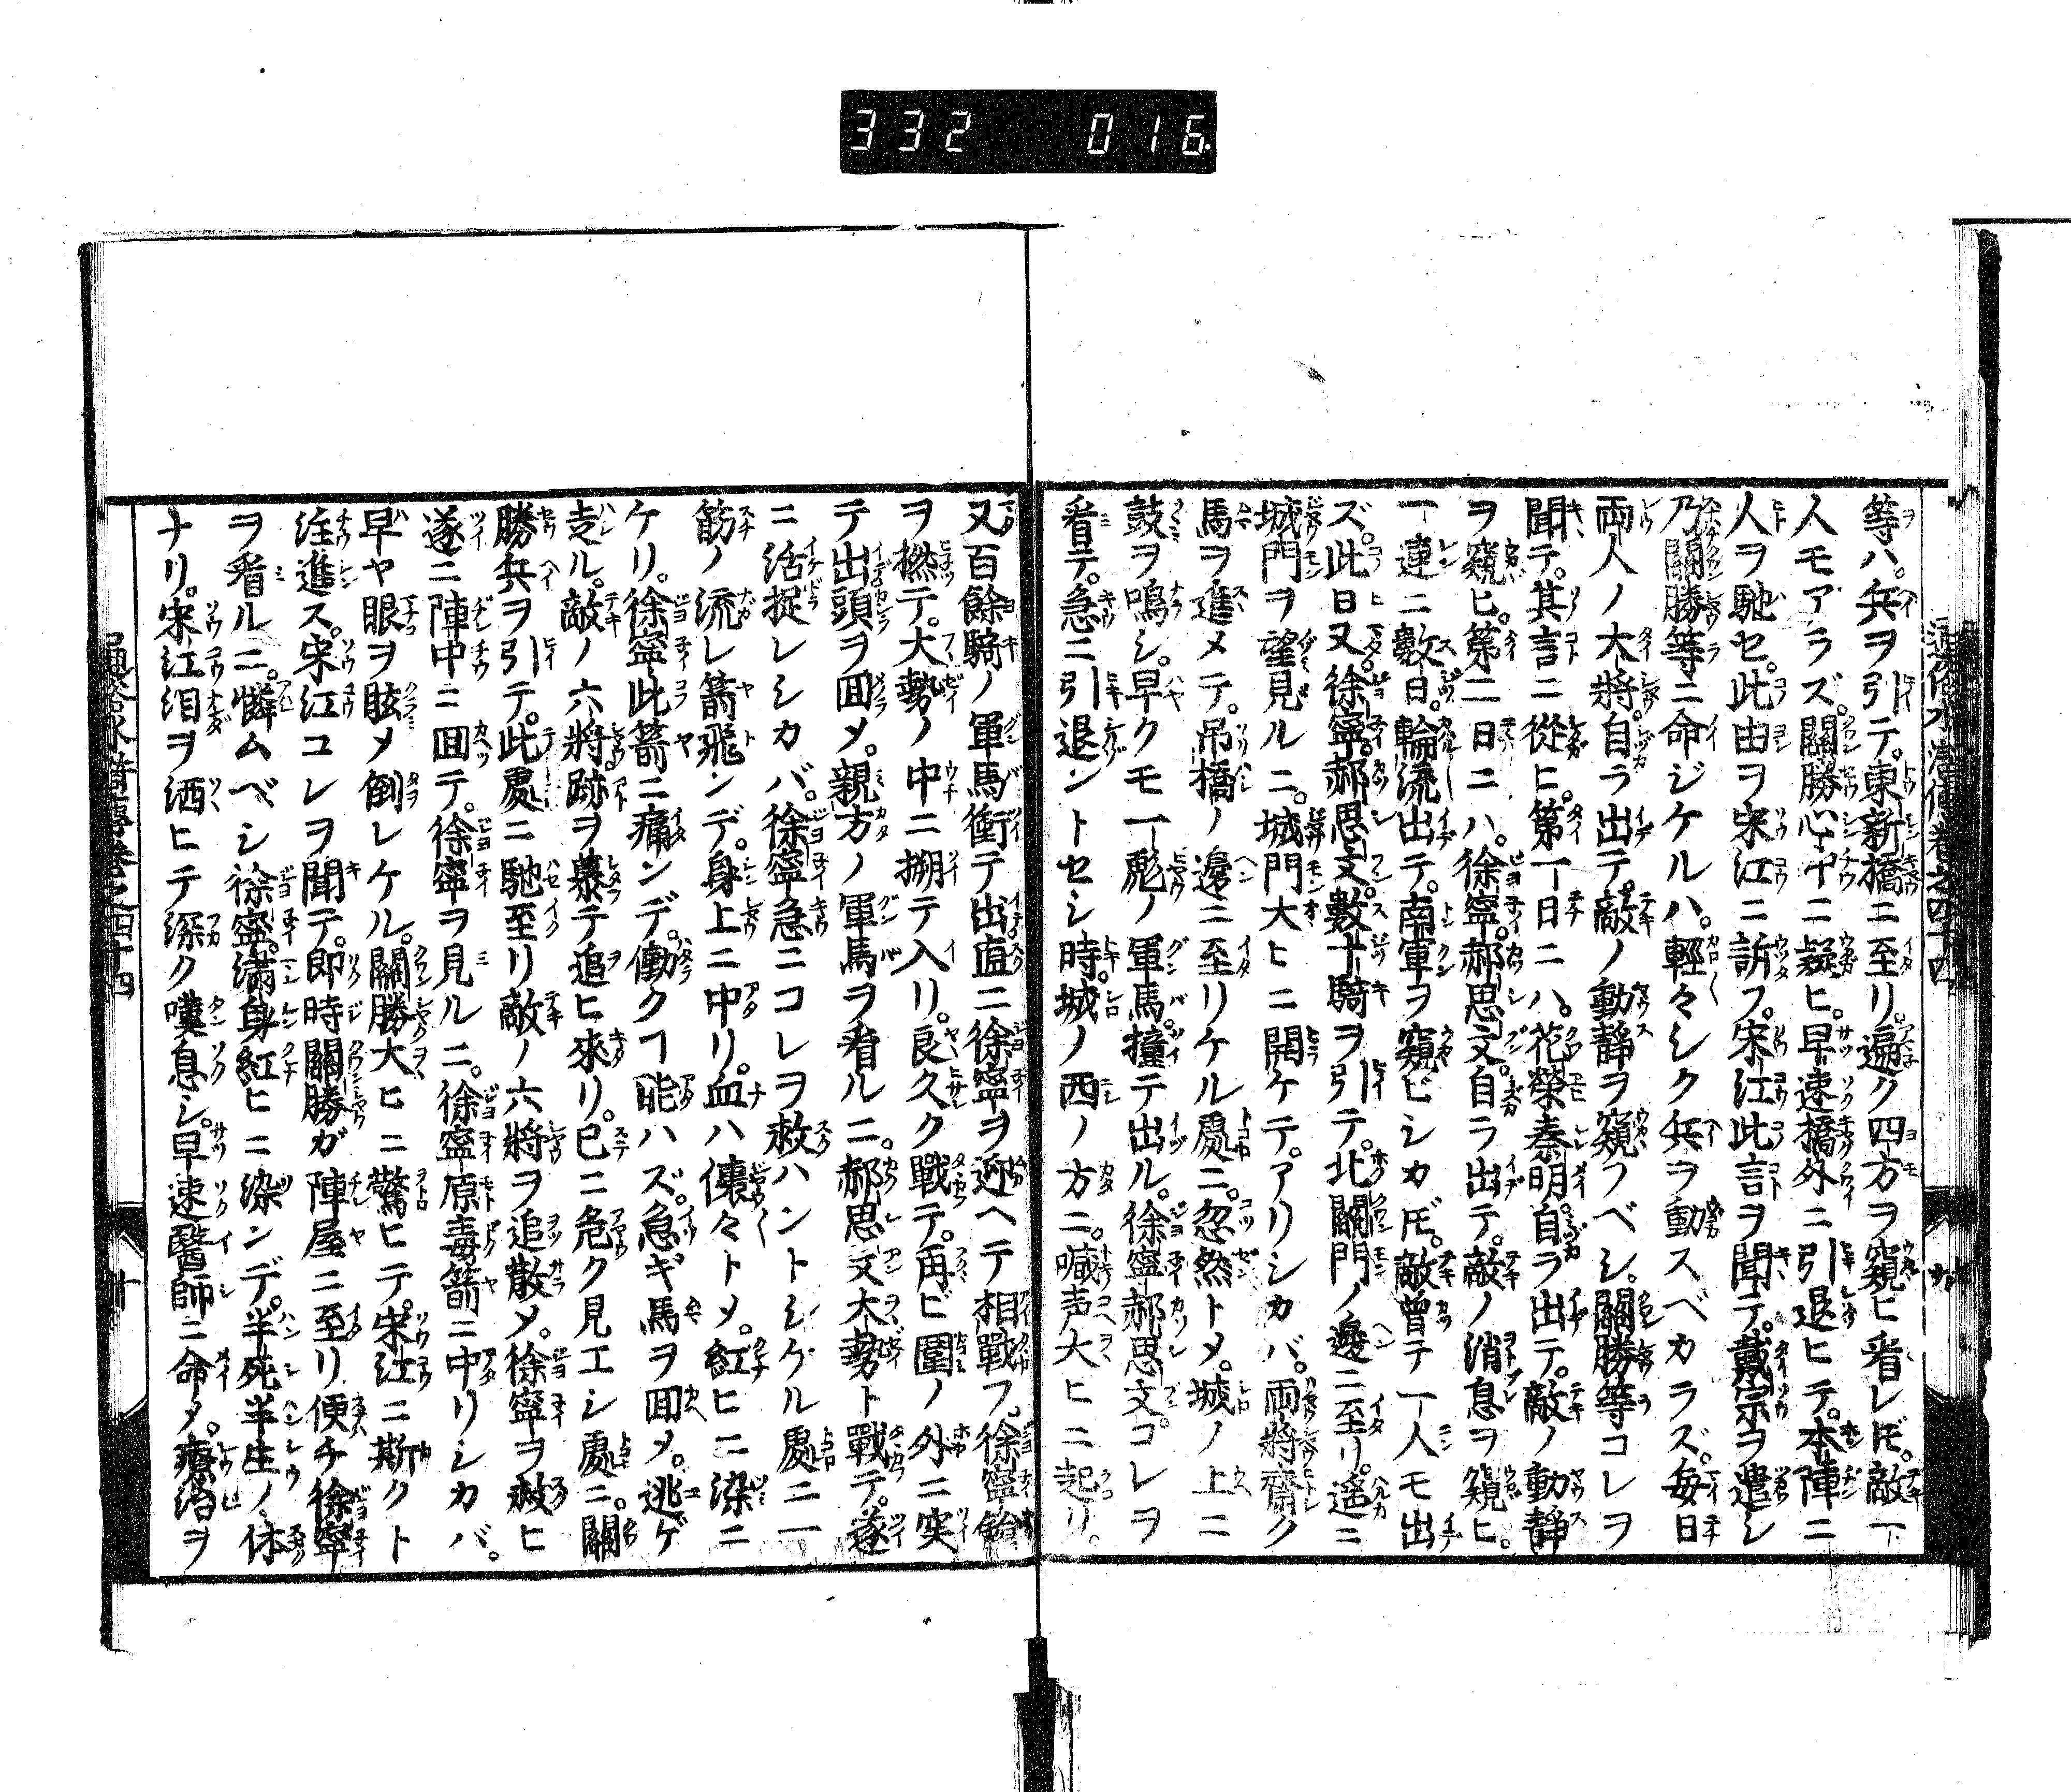 332 016
等ハ。兵ヲ引テ。東新橋ニ至リ。遍ク四方ヲ窺ヒ看レ𪜈。敵一
人モアラズ。關勝心中ニ疑ヒ。早速橋外ニ引退ヒテ。本陣ニ
人ヲ馳セ。此由ヲ宋江ニ訴フ。宋江此言ヲ聞テ。戴宗ヲ遣シ
乃關勝等ニ命ジケルハ。輕々シク兵ヲ動スベカラズ。毎日
両人ノ大將。自ラ出テ。敵ノ動靜ヲ窺フベシ。關勝等コレヲ
聞テ。其言ニ從ヒ。第一日ニハ。花榮秦明。自ラ出テ。敵ノ動靜
ヲ窺ヒ。第二日ニハ。徐寧。郝思文。自ラ出テ。敵ノ消息ヲ窺ヒ。
一連ニ數日。輪流出テ。南軍ヲ窺ヒシカ𪜈。敵曾テ一人モ出
ズ。此日又徐寧。郝思文。數十騎ヲ引テ。北關門ノ邊ニ至リ。遙ニ
城門ヲ望見ルニ。城門大ヒニ開ケテ。アリシカバ。両將齋ク
馬ヲ進メテ。吊橋ノ邊ニ至リケル處ニ。忽然トメ。城ノ上ニ
鼓ヲ鳴シ。早クモ一彪ノ軍馬。撞テ出ル。徐寧郝思文。コレヲ
看テ。急ニ引退ントセシ時。城ノ西ノ方ニ。喊声大ヒニ起リ。
又百餘騎ノ軍馬衝テ出。直ニ徐寧ヲ迎ヘテ相戰フ。徐寧鎗
ヲ撚テ。大勢ノ中ニ搠テ入リ。良久ク戰テ。再ビ圍ノ外ニ突
テ出頭ヲ回メ。親方ノ軍馬ヲ看ルニ。郝思文大勢ト戰テ。遂
ニ活捉レシカバ。徐寧急ニコレヲ救ハントシケル處ニ一
筋ノ流レ箭飛ンデ。身上ニ中リ。血ハ儴々トメ。紅ヒニ染ニ
ケリ。徐寧此箭ニ痛ンデ。働クヿ能ハズ。急ギ馬ヲ回メ。逃ゲ
走ル。敵ノ六將跡ヲ慕テ追ヒ來リ。已ニ危ク見エシ處ニ。關
勝兵ヲ引テ。此處ニ馳至リ敵ノ六將ヲ追散メ。徐寧ヲ救ヒ
遂ニ陣中ニ回テ。徐寧ヲ見ルニ。徐寧原毒箭ニ中リシカバ。
早ヤ眼ヲ眩メ倒レケル。關勝大ヒニ驚ヒテ。宋江ニ斯クト
注進ス。宋江コレヲ聞テ。即時關勝ガ陣屋ニ至リ便チ徐寧
ヲ看ルニ。憐ムベシ徐寧。滿身紅ヒニ染ンデ。半死半生ノ体
ナリ。宋江泪ヲ洒ヒテ深ク嘆息シ。早速醫師ニ命メ。療治ヲ